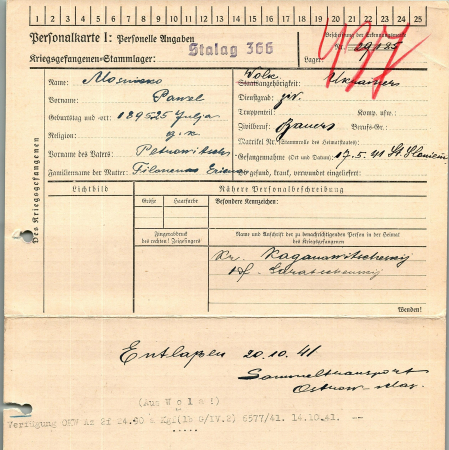 1 2 3 4 5 6 7 8 9 10 11 12 13 14 15 16 17 18 19 20 21 22 23 24 25
Personalkarte I: Personelle Angaben
Kriegsgefangenen-Stammlager: Stalag 366
Beschriftung der Erkennungsmarke
Nr. 29185
Lager:
Des Kriegsgefangenen
Name: Mosiejko
Vorname: Pawel
Geburtstag und -ort:
Religion:
Vorname des Vaters: Petrowitsch
Familienname der Mutter: Filomena
Volk
Staatsangehörigkeit: Ukrainers
Dienstgrad:
Truppenteil: Komp. usw.:
Zivilberuf: Bauer Berufs-Gr.:
Matrikel Nr. (Stammrolle des Heimatstaates):
Gefangennahme (Ort und Datum): 17.5.41 St. Slonim
Ob gesund, krank, verwundet eingeliefert:
Lichtbild
Nähere Personalbeschreibung
Größe Haarfarbe
Besondere Kennzeichen:
Fingerabdruck
des rechten! Zeigefingers
Name und Anschrift der zu benachrichtigenden Person in der Heimat
des Kriegsgefangenen
Kr. Kaganowitschewij
Wenden!
Entlassen 20.10.41
Sammeltransport
Ostrow-Maz.
(Aus W o l a !)
Verfügung OKW Az 2f 24.30 Kgf(Ib O/IV.2) 6577/41. 14.10.41. --